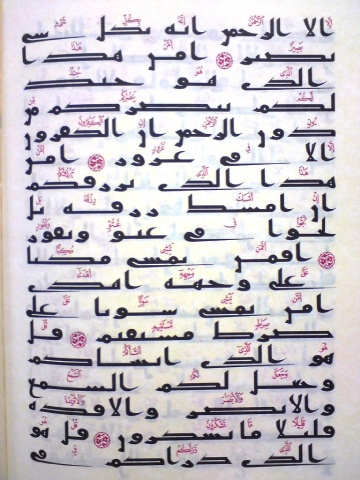 الا الرحمن انه بكل شى
بصير ۝ امن هذا
الذى هو جند
لكم ينصركم من
دون الرحمن ان الكفرون
الا فى غرور ۝ امن
هذا الذى يرزقكم
ان امسك رزقه بل
لجوا فى عتو ونفور
۝ افمن يمشى مكبا
على وجهه اهدى
امن يمشى سويا على
صرط مستقيم ۝ قل
هو الذى انشاكم
وجعل لكم السمع
والابصر والافده
قليلا ما تشكرون ۝ قل هو
الذى ذراكم فى